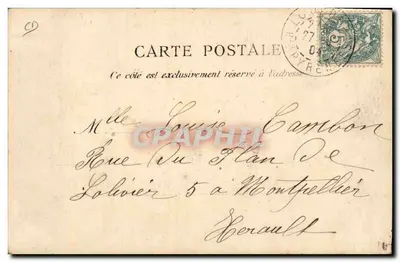 CARTE POSTALE
Ce côté est exclusivement réservé à l'adresse
Mlle Louise Cambon
Rue du Plan de
Lolivier 5 à Montpellier
Herault
CPAPHIL